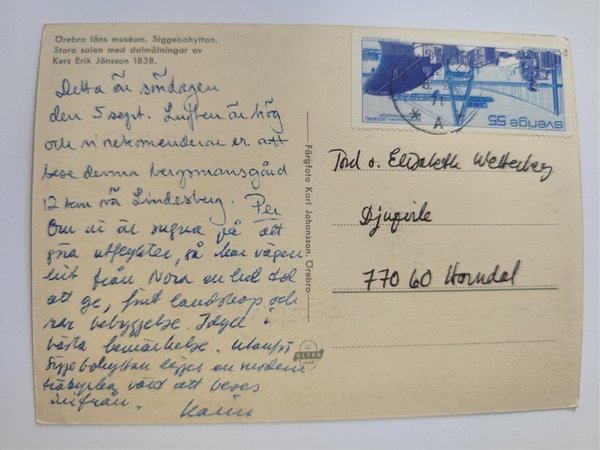 Örebro läns muséum. Siggebohyttan.
Stora salen med dalmålningar av
Kers Erik Jönsson 1838.
Detta är söndagen
den 5 sept. Luften är hög
och vi rekomenderar er att
bese denna bergsmansgård
12 km Lindesberg.
Om ni är sugna på att
göra utflykter, så har vägen
hit från Nora en hel del
att ge, fint landskap och
rar bebyggelse. Idyll i
bästa bemärkelse.
Siggebohyttan ligger en modern
träkyrka värd att beses
inifrån. Karin
Färgfoto Karl Johansson, Örebro
ULTRA
sverige 55
A
Tord o. Elisabeth Wetterberg
770 60 Horndal